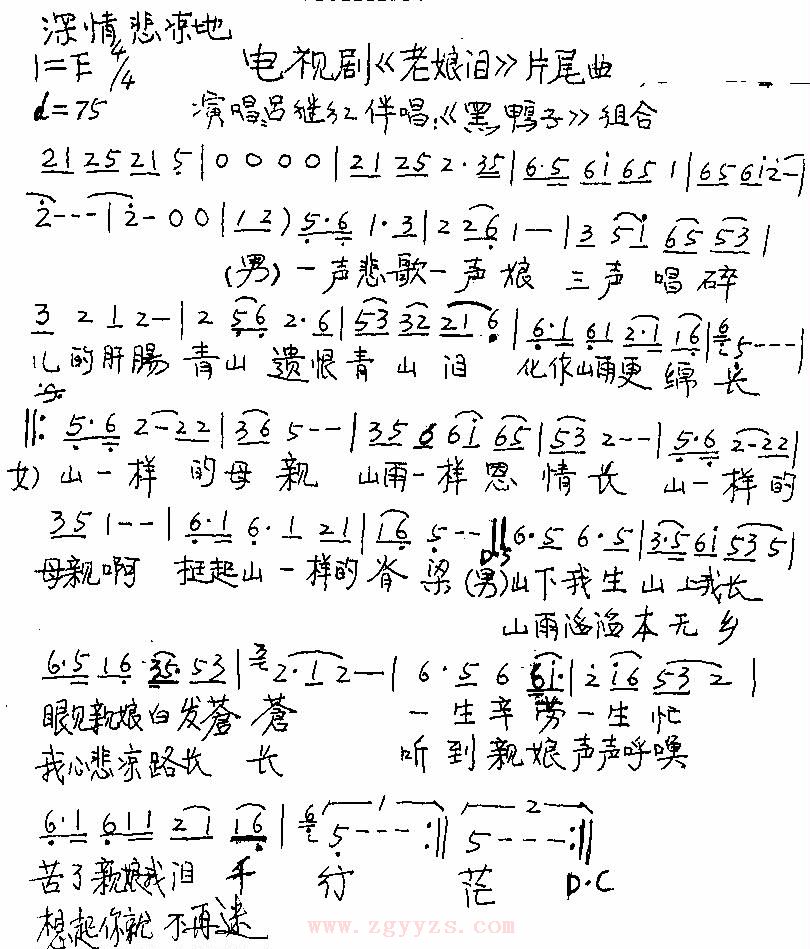 深情悲凉地
1=F 4/4
电视剧《老娘泪》片尾曲
♩=75
演唱:吕继红 伴唱:《黑鸭子》组合
21 25 21 5 | 0 0 0 0 | 21 25 2·35 | 6·5 6i 65 1 | 65 6i 2 - |
2 - - - | 2 - 0 0 | 1 2 ) 5·6 1·3 | 2 26 1 - - | 3 5i 65 53 |
(男) 一声悲歌一声娘 三声唱碎
3 2 1 2 - | 2 56 2·6 | 53 32 21 6 | 6·1 61 2·1 16 | 6 5 - - - |
儿的肝腸 青山遗恨青山泪 化作山雨更绵长
||: 5·6 2 - 22 | 36 5 - - | 35 6 6i 65 | 53 2 - - | 5·6 2 - 22 |
女) 山一样的母亲 山雨一样恩情长 山一样的
35 1 - - | 6·1 6·1 21 | 16 5 - - || 6·5 6·5 | 3·5 6i 53 5 |
D·S
母亲啊 挺起山一样的脊梁 (男)山下我生山上我长
山雨滔滔本无乡
6·5 16 35· 53 | 2·1 2 — | 6·5 6 6i· | 2 i6 53 2 |
眼见亲娘白发蒼蒼 一生辛劳一生忙
我心悲凉路长长 听到亲娘声声呼唤
6·1 611 21 16 | 6 5 - - - :|| 5 - - - :||
1 2
苦了亲娘我泪千行 茫 D·C
想起你就不再迷
www.zgyyzs.com